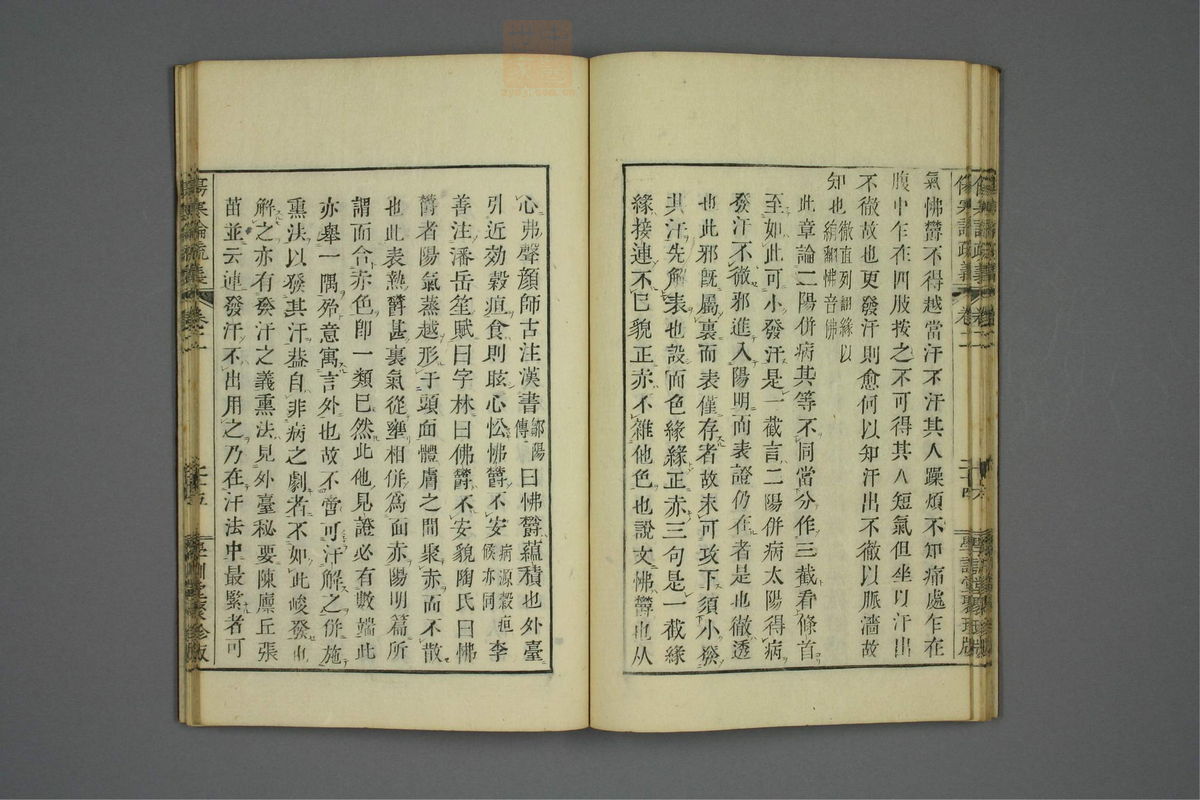 氣怫鬱不得越當汗不汗其人躁煩不知痛處乍在
腹中乍在四肢按之不可得其人短氣但坐以汗出
不徹故也更發汗則愈何以知汗出不徹以脈濇故
知也徹直列翻緣以絹翻怫音佛
此章論二陽併病其等不同當分作三截看條首
至如此可小發汗是一截言二陽併病太陽得病
發汗不徹邪進入陽明而表證仍在者是也徹透
也此邪旣屬裏而表僅存者故未可攻下須小發
其汗先解表也設面色緣緣正赤三句是一截緣
緣接連不已貌正赤不雜他色也說文怫鬱也从
心弗聲顏師古注漢書鄒陽傳曰怫鬱蘊積也外臺
引近効穀疸食則眩心忪怫鬱不安病源穀疸候亦同李
善注潘岳笙賦曰字林曰怫鬱不安貌陶氏曰怫
鬱者陽氣蒸越形于頭面體膚之間聚赤而不散
也此表熱鬱甚裏氣從壅相併爲面赤陽明篇所
謂面合赤色卽一類已然此他見證必有數端此
亦舉一隅殆意寓言外也故不啻可汗解之併施
熏法以發其汗葢自非病之劇者不如此峻發也
解之亦有發汗之義熏法見外臺秘要陳廩丘張
苗並云連發汗不出用之乃在汗法中最緊者可
傷寒論疏義
卷二
學訓堂聚珍版
傷寒論疏義
卷二